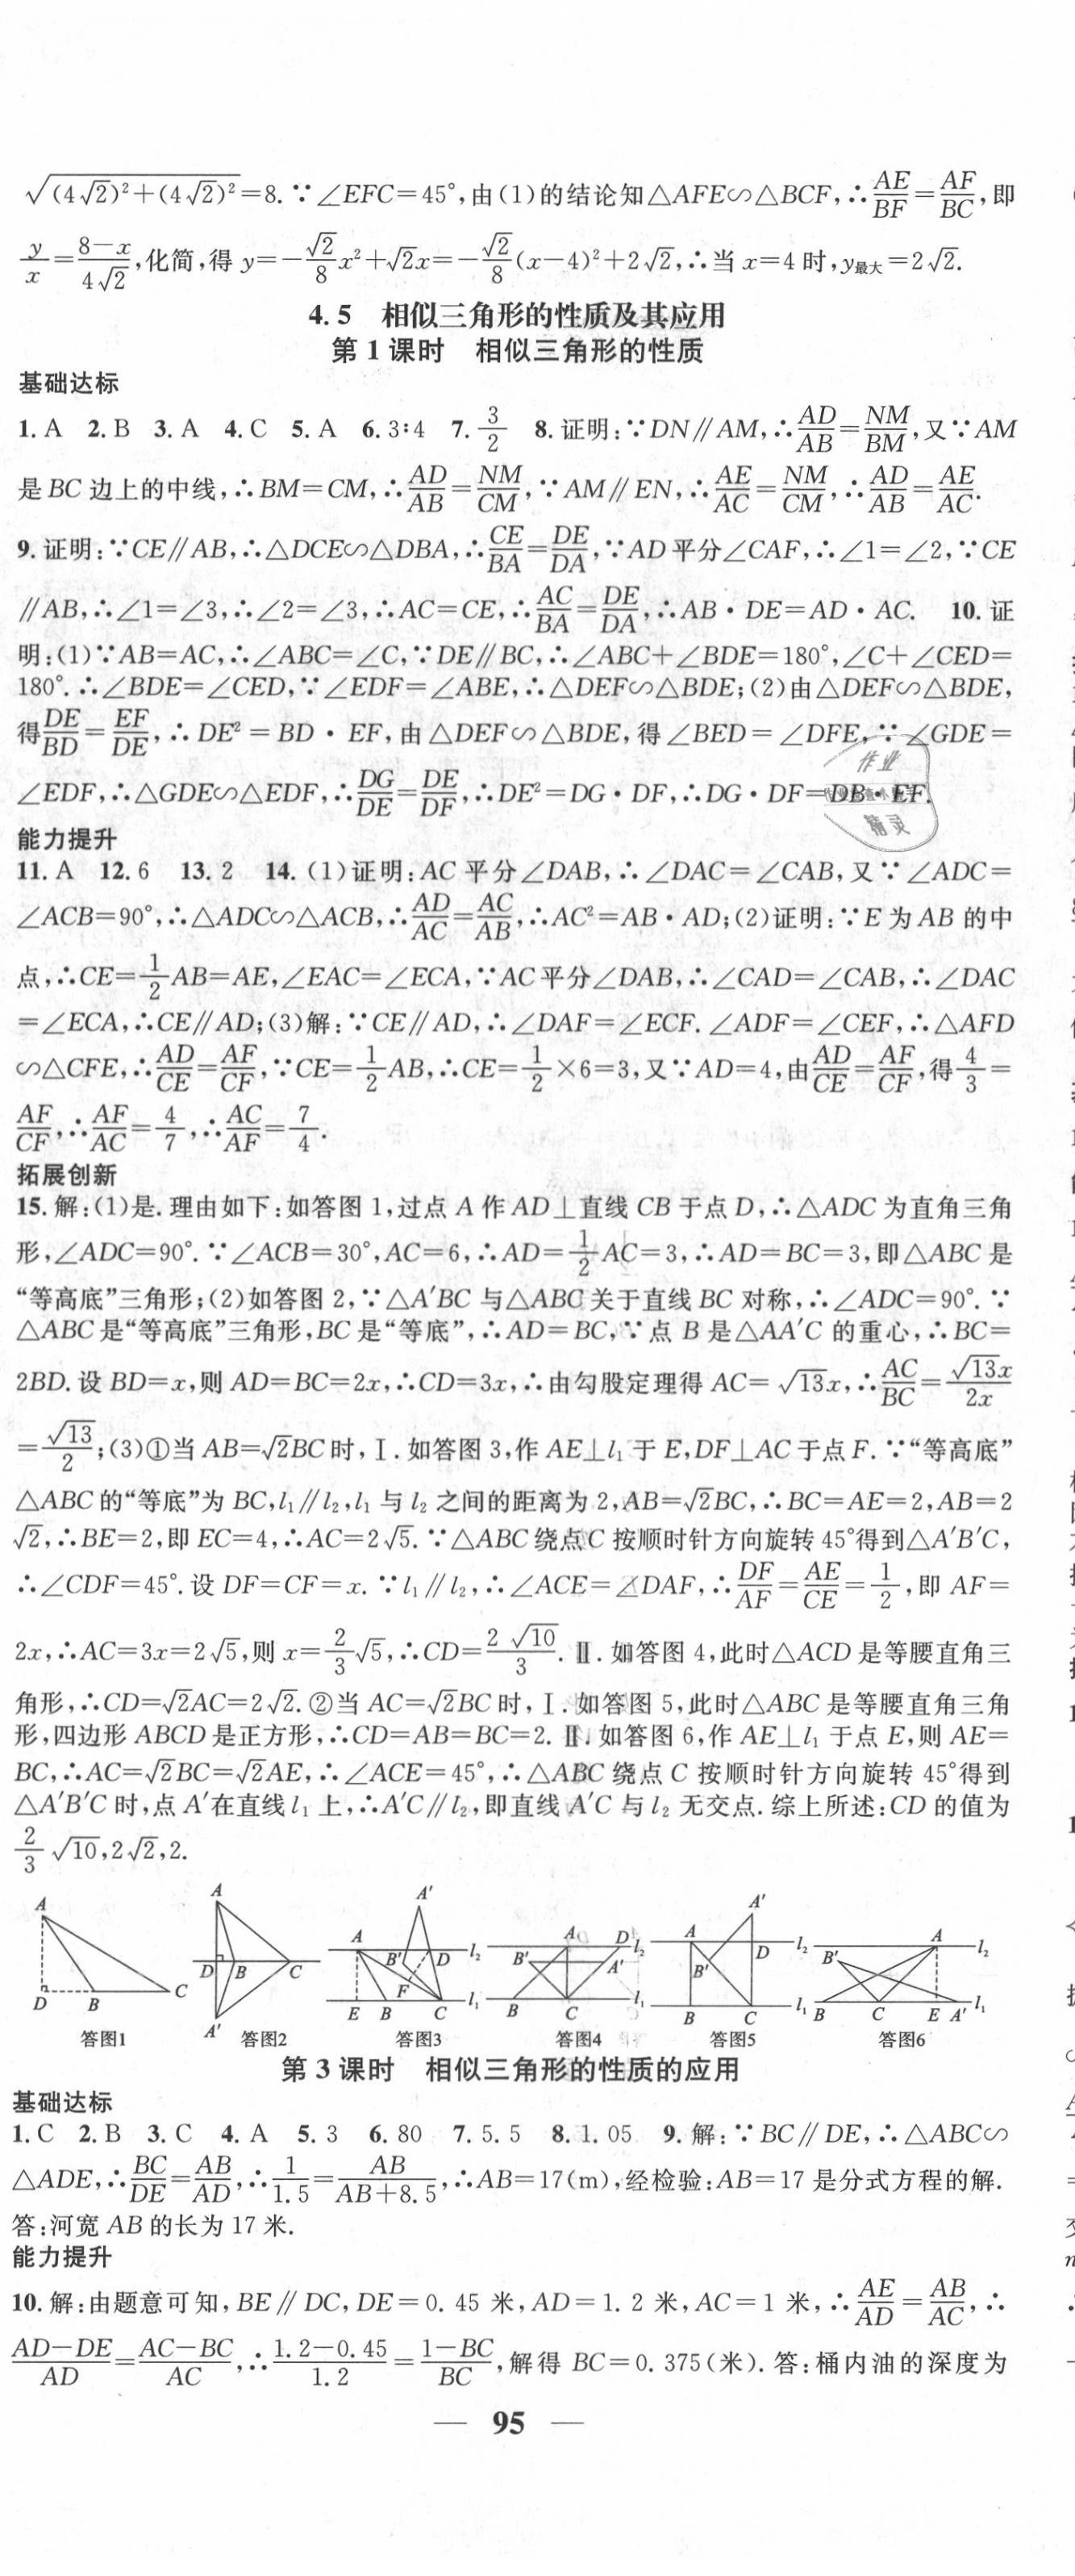 √(4√2)²+(4√2)²=8.∵∠EFC=45°,由(1)的结论知△AFE∽△BCF,∴AE/BF=AF/BC,即
y/x=8-x/4√2,化简,得y=-√2/8x²+√2x=-√2/8(x-4)²+2√2,∴当x=4时,y最大=2√2.
4.5 相似三角形的性质及其应用
第1课时 相似三角形的性质
基础达标
1.A 2.B 3.A 4.C 5.A 6.3∶4 7.3/2 8.证明:∵DN∥AM,∴AD/AB=NM/BM,又∵AM
是BC边上的中线,∴BM=CM,∴AD/AB=NM/CM,∵AM∥EN,∴AE/AC=NM/CM,∴AD/AB=AE/AC.
9.证明:∵CE∥AB,∴△DCE∽△DBA,∴CE/BA=DE/DA,∵AD平分∠CAF,∴∠1=∠2,∵CE
∥AB,∴∠1=∠3,∴∠2=∠3,∴AC=CE,∴AC/BA=DE/DA,∴AB·DE=AD·AC. 10.证
明:(1)∵AB=AC,∴∠ABC=∠C,∵DE∥BC,∴∠ABC+∠BDE=180°,∠C+∠CED=
180°.∴∠BDE=∠CED,∵∠EDF=∠ABE,∴△DEF∽△BDE;(2)由△DEF∽△BDE,
得DE/BD=EF/DE,∴DE²=BD·EF,由△DEF∽△BDE,得∠BED=∠DFE,∵∠GDE=
∠EDF,∴△GDE∽△EDF,∴DG/DE=DE/DF,∴DE²=DG·DF,∴DG·DF=DB·EF.
作业
精灵
能力提升
11.A 12.6 13.2 14.(1)证明:AC平分∠DAB,∴∠DAC=∠CAB,又∵∠ADC=
∠ACB=90°,∴△ADC∽△ACB,∴AD/AC=AC/AB,∴AC²=AB·AD;(2)证明:∵E为AB的中
点,∴CE=1/2AB=AE,∠EAC=∠ECA,∵AC平分∠DAB,∴∠CAD=∠CAB,∴∠DAC
=∠ECA,∴CE∥AD;(3)解:∵CE∥AD,∴∠DAF=∠ECF.∠ADF=∠CEF,∴△AFD
∽△CFE,∴AD/CE=AF/CF,∵CE=1/2AB,∴CE=1/2×6=3,又∵AD=4,由AD/CE=AF/CF,得4/3=
AF/CF,∴AF/AC=4/7,∴AC/AF=7/4.
拓展创新
15.解:(1)是.理由如下:如答图1,过点A作AD⊥直线CB于点D,∴△ADC为直角三角
形,∠ADC=90°.∵∠ACB=30°,AC=6,∴AD=1/2AC=3,∴AD=BC=3,即△ABC是
“等高底”三角形;(2)如答图2,∵△A′BC与△ABC关于直线BC对称,∴∠ADC=90°.∵
△ABC是“等高底”三角形,BC是“等底”,∴AD=BC,∵点B是△AA′C的重心,∴BC=
2BD.设BD=x,则AD=BC=2x,∴CD=3x,∴由勾股定理得AC=√13x,∴AC/BC=√13x/2x
=√13/2;(3)①当AB=√2BC时,Ⅰ.如答图3,作AE⊥l₁于E,DF⊥AC于点F.∵“等高底”
△ABC的“等底”为BC,l₁∥l₂,l₁与l₂之间的距离为2,AB=√2BC,∴BC=AE=2,AB=2
√2,∴BE=2,即EC=4,∴AC=2√5.∵△ABC绕点C按顺时针方向旋转45°得到△A′B′C,
∴∠CDF=45°.设DF=CF=x.∵l₁∥l₂,∴∠ACE=∠DAF,∴DF/AF=AE/CE=1/2,即AF=
2x,∴AC=3x=2√5,则x=2/3√5,∴CD=2√10/3.Ⅱ.如答图4,此时△ACD是等腰直角三
角形,∴CD=√2AC=2√2.②当AC=√2BC时,Ⅰ.如答图5,此时△ABC是等腰直角三角
形,四边形ABCD是正方形,∴CD=AB=BC=2.Ⅱ.如答图6,作AE⊥l₁于点E,则AE=
BC,∴AC=√2BC=√2AE,∴∠ACE=45°,∴△ABC绕点C按顺时针方向旋转45°得到
△A′B′C时,点A′在直线l₁上,∴A′C∥l₂,即直线A′C与l₂无交点.综上所述:CD的值为
2/3√10,2√2,2.
A D B C 答图1
A D B C A′ 答图2
A′ A B′ D l₂ F E B C l₁ 答图3
A D l₂ B′ A′ B C l₁ 答图4
A′ A l₂ D B′ B C l₁ 答图5
A l₂ B′ B C E A′ l₁ 答图6
第3课时 相似三角形的性质的应用
基础达标
1.C 2.B 3.C 4.A 5.3 6.80 7.5.5 8.1.05 9.解:∵BC∥DE,∴△ABC∽
△ADE,∴BC/DE=AB/AD,∴1/1.5=AB/AB+8.5,∴AB=17(m),经检验:AB=17是分式方程的解.
答:河宽AB的长为17米.
能力提升
10.解:由题意可知,BE∥DC,DE=0.45米,AD=1.2米,AC=1米,∴AE/AD=AB/AC,∴
AD-DE/AD=AC-BC/AC,∴1.2-0.45/1.2=1-BC/BC,解得BC=0.375(米).答:桶内油的深度为
— 95 —